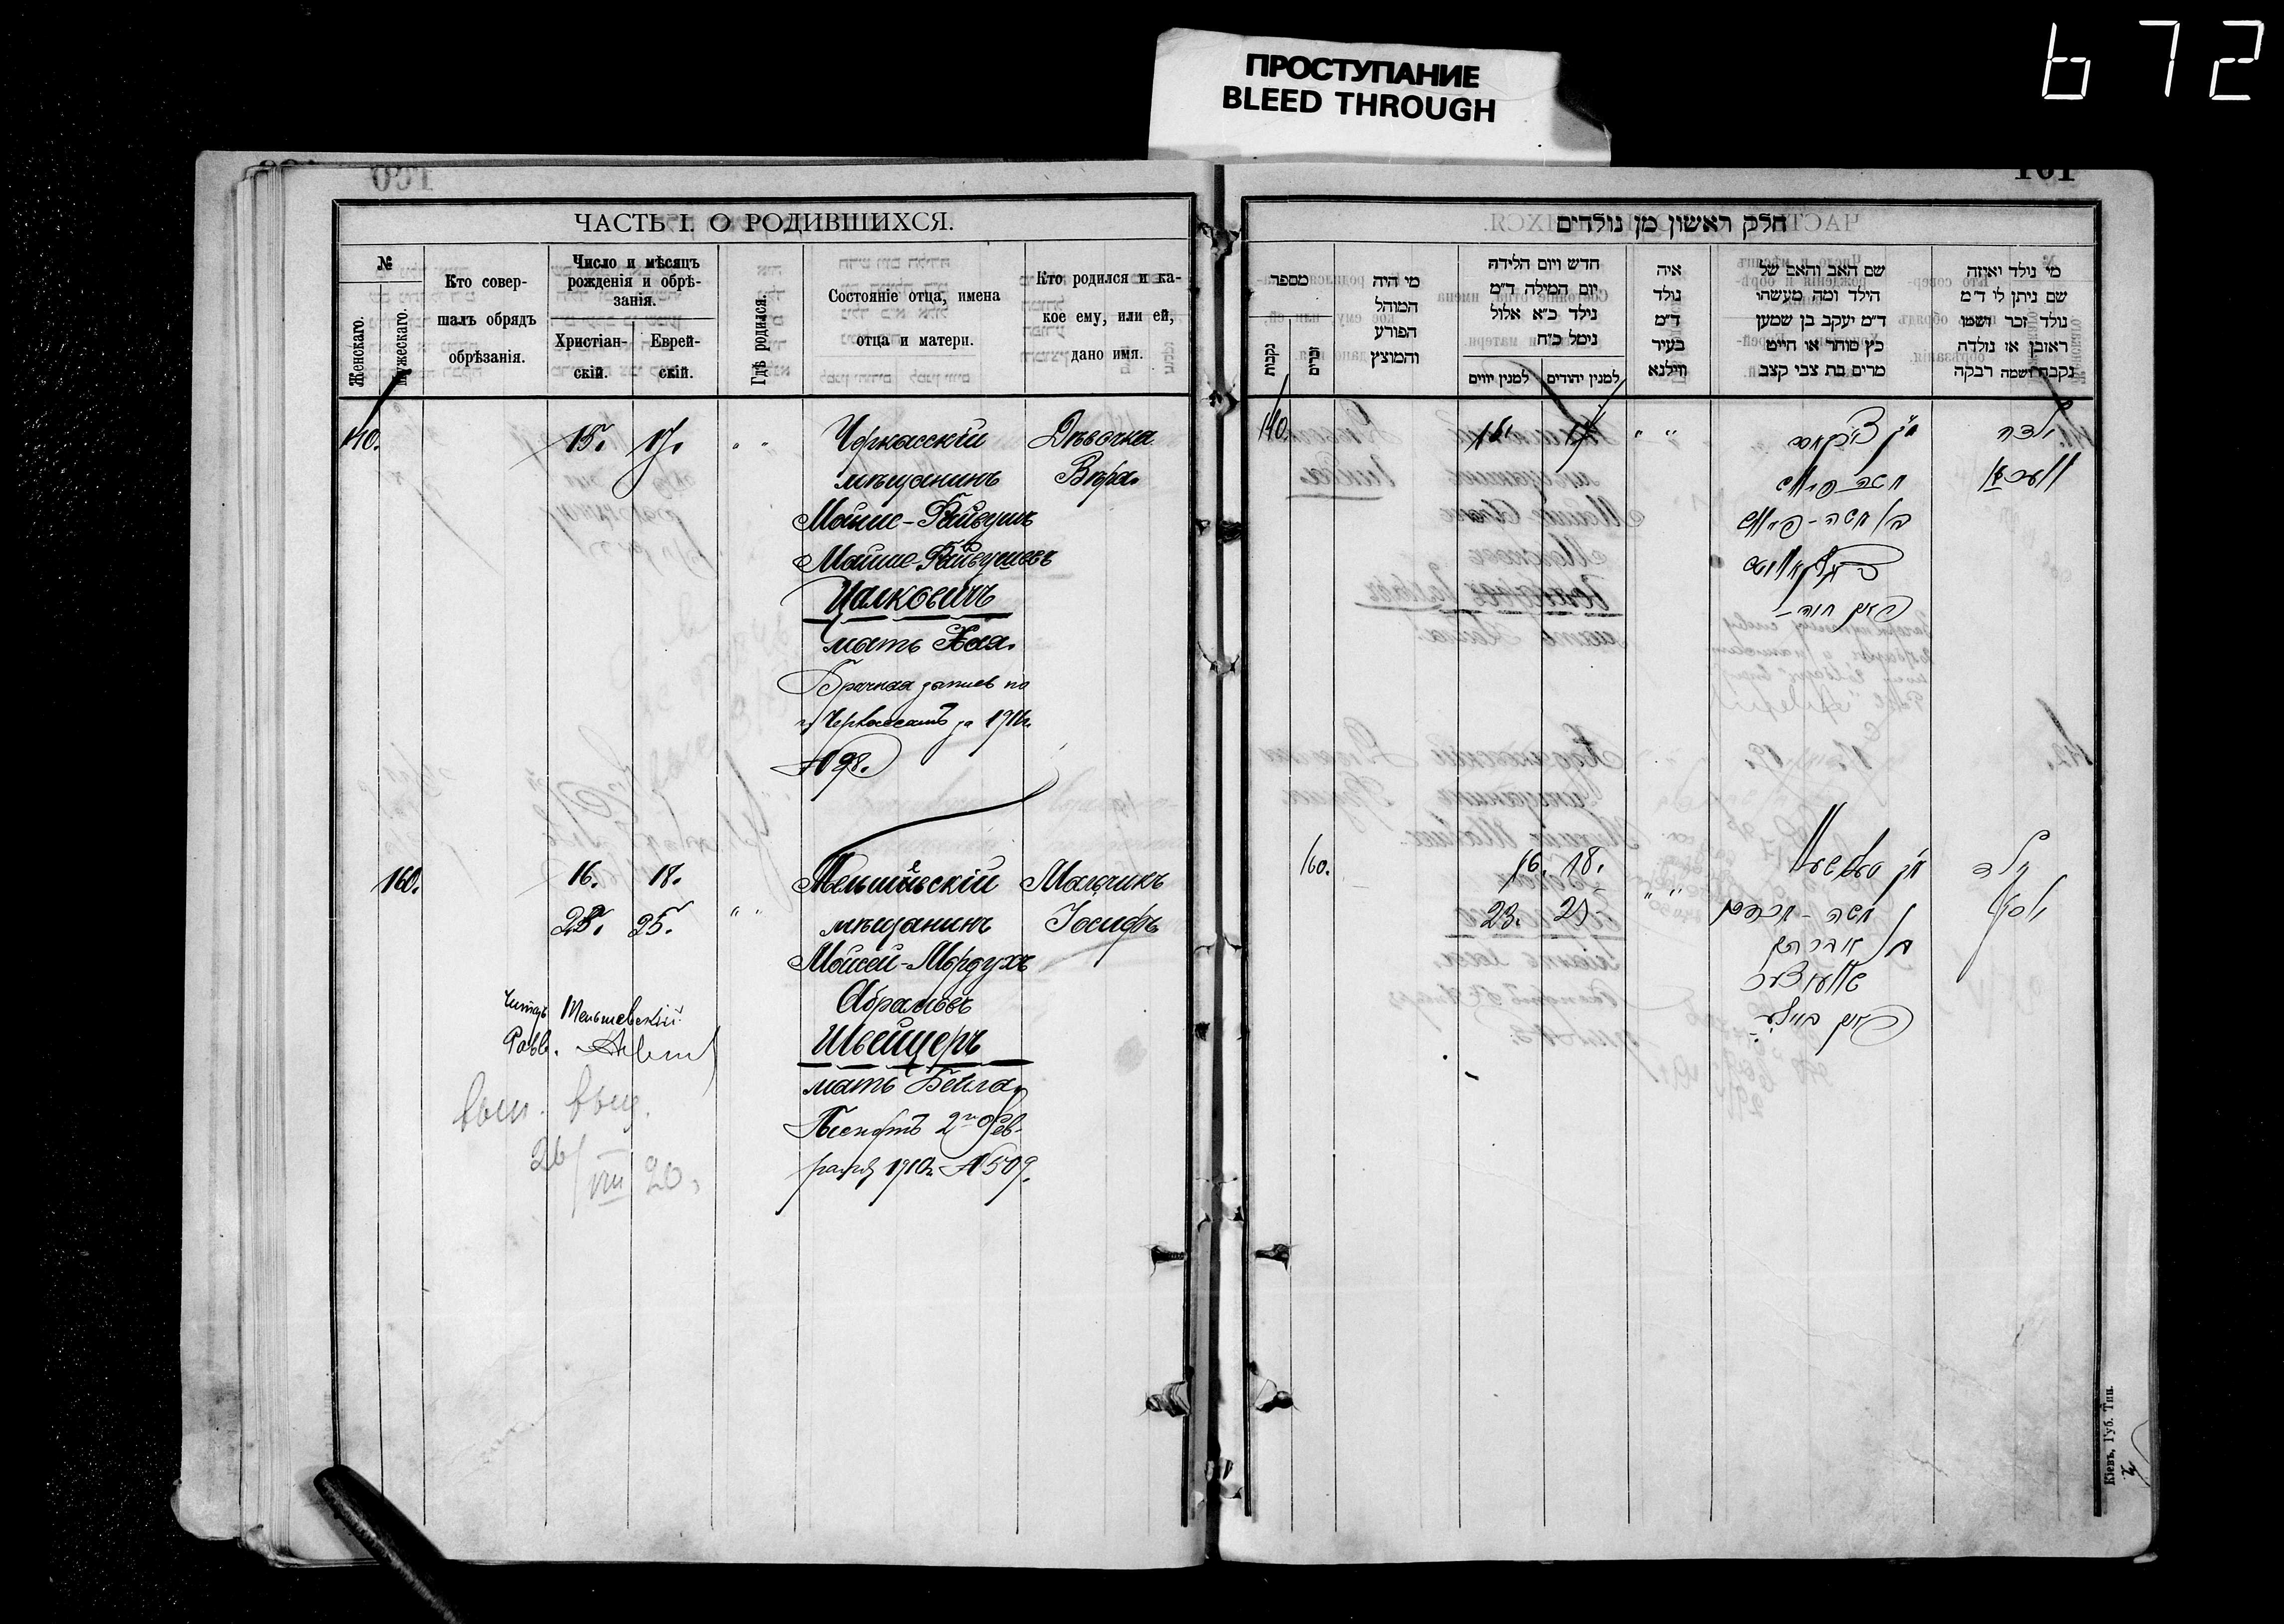 672
ПРОСТУПАНИЕ
BLEED THROUGH
ЧАСТЬ I. О РОДИВШИХСЯ.
№
Женскаго.
Мужескаго.
Кто совер-
шалъ обрядъ
обрѣзанія.
Число и мѣсяцъ
рожденія и обрѣ-
занія.
Христіан-
скій.
Еврей-
скій.
Гдѣ родился.
Состояніе отца, имена
отца и матери.
Кто родился и ка-
кое ему, или ей,
дано имя.
140.
15.
17.
" "
Черкасскій
мѣщанинъ
Мойше-Файвушъ
Мойше-Файвушевъ
Цалковичъ
мать Хая.
Брачная запись по
г. Черкассамъ за 1911г.
№ 98.
Дѣвочка
Вѣра.
160.
16. 18.
23. 25.
" "
мѣщанинъ
Мойсей-Мордухъ
Абрамовъ
Швейцеръ
мать Бейла,
Паспортъ 2го Фев-
раля 1910г. № 509.
Мальчикъ
Іосифъ
Читать
Равв.
вып. выд.
26/VIII 20.
161
חלק ראשון מן נולדים
מספר
נקבות
זכרים
מי היה
המוהל
הפורע
והמוצץ
חדש ויום הלידה
יום המילה ד״מ
נולד כ״א אלול
נימל כ״ח
למנין יווים
למנין יהודים
איה
נולד
ד״מ
בעיר
ווילנא
שם האב והאם של
הילד ומה מעשהו
ד״מ יעקב בן שמען
כץ סוחר או חייט
מרים בת צבי קצב
מי נולד יאיזה
שם ניתן לו ד״מ
נולד זכר ושמו
ראובן או נולדה
נקבה ושמה רבקה
140.
15.
17.
" "
ילדה
160.
16. 18.
23. 25
" "
ילד
יוסף
משה - מרדכי
בן אברהם
שווייצער
Кіевъ, Губ. Тип.